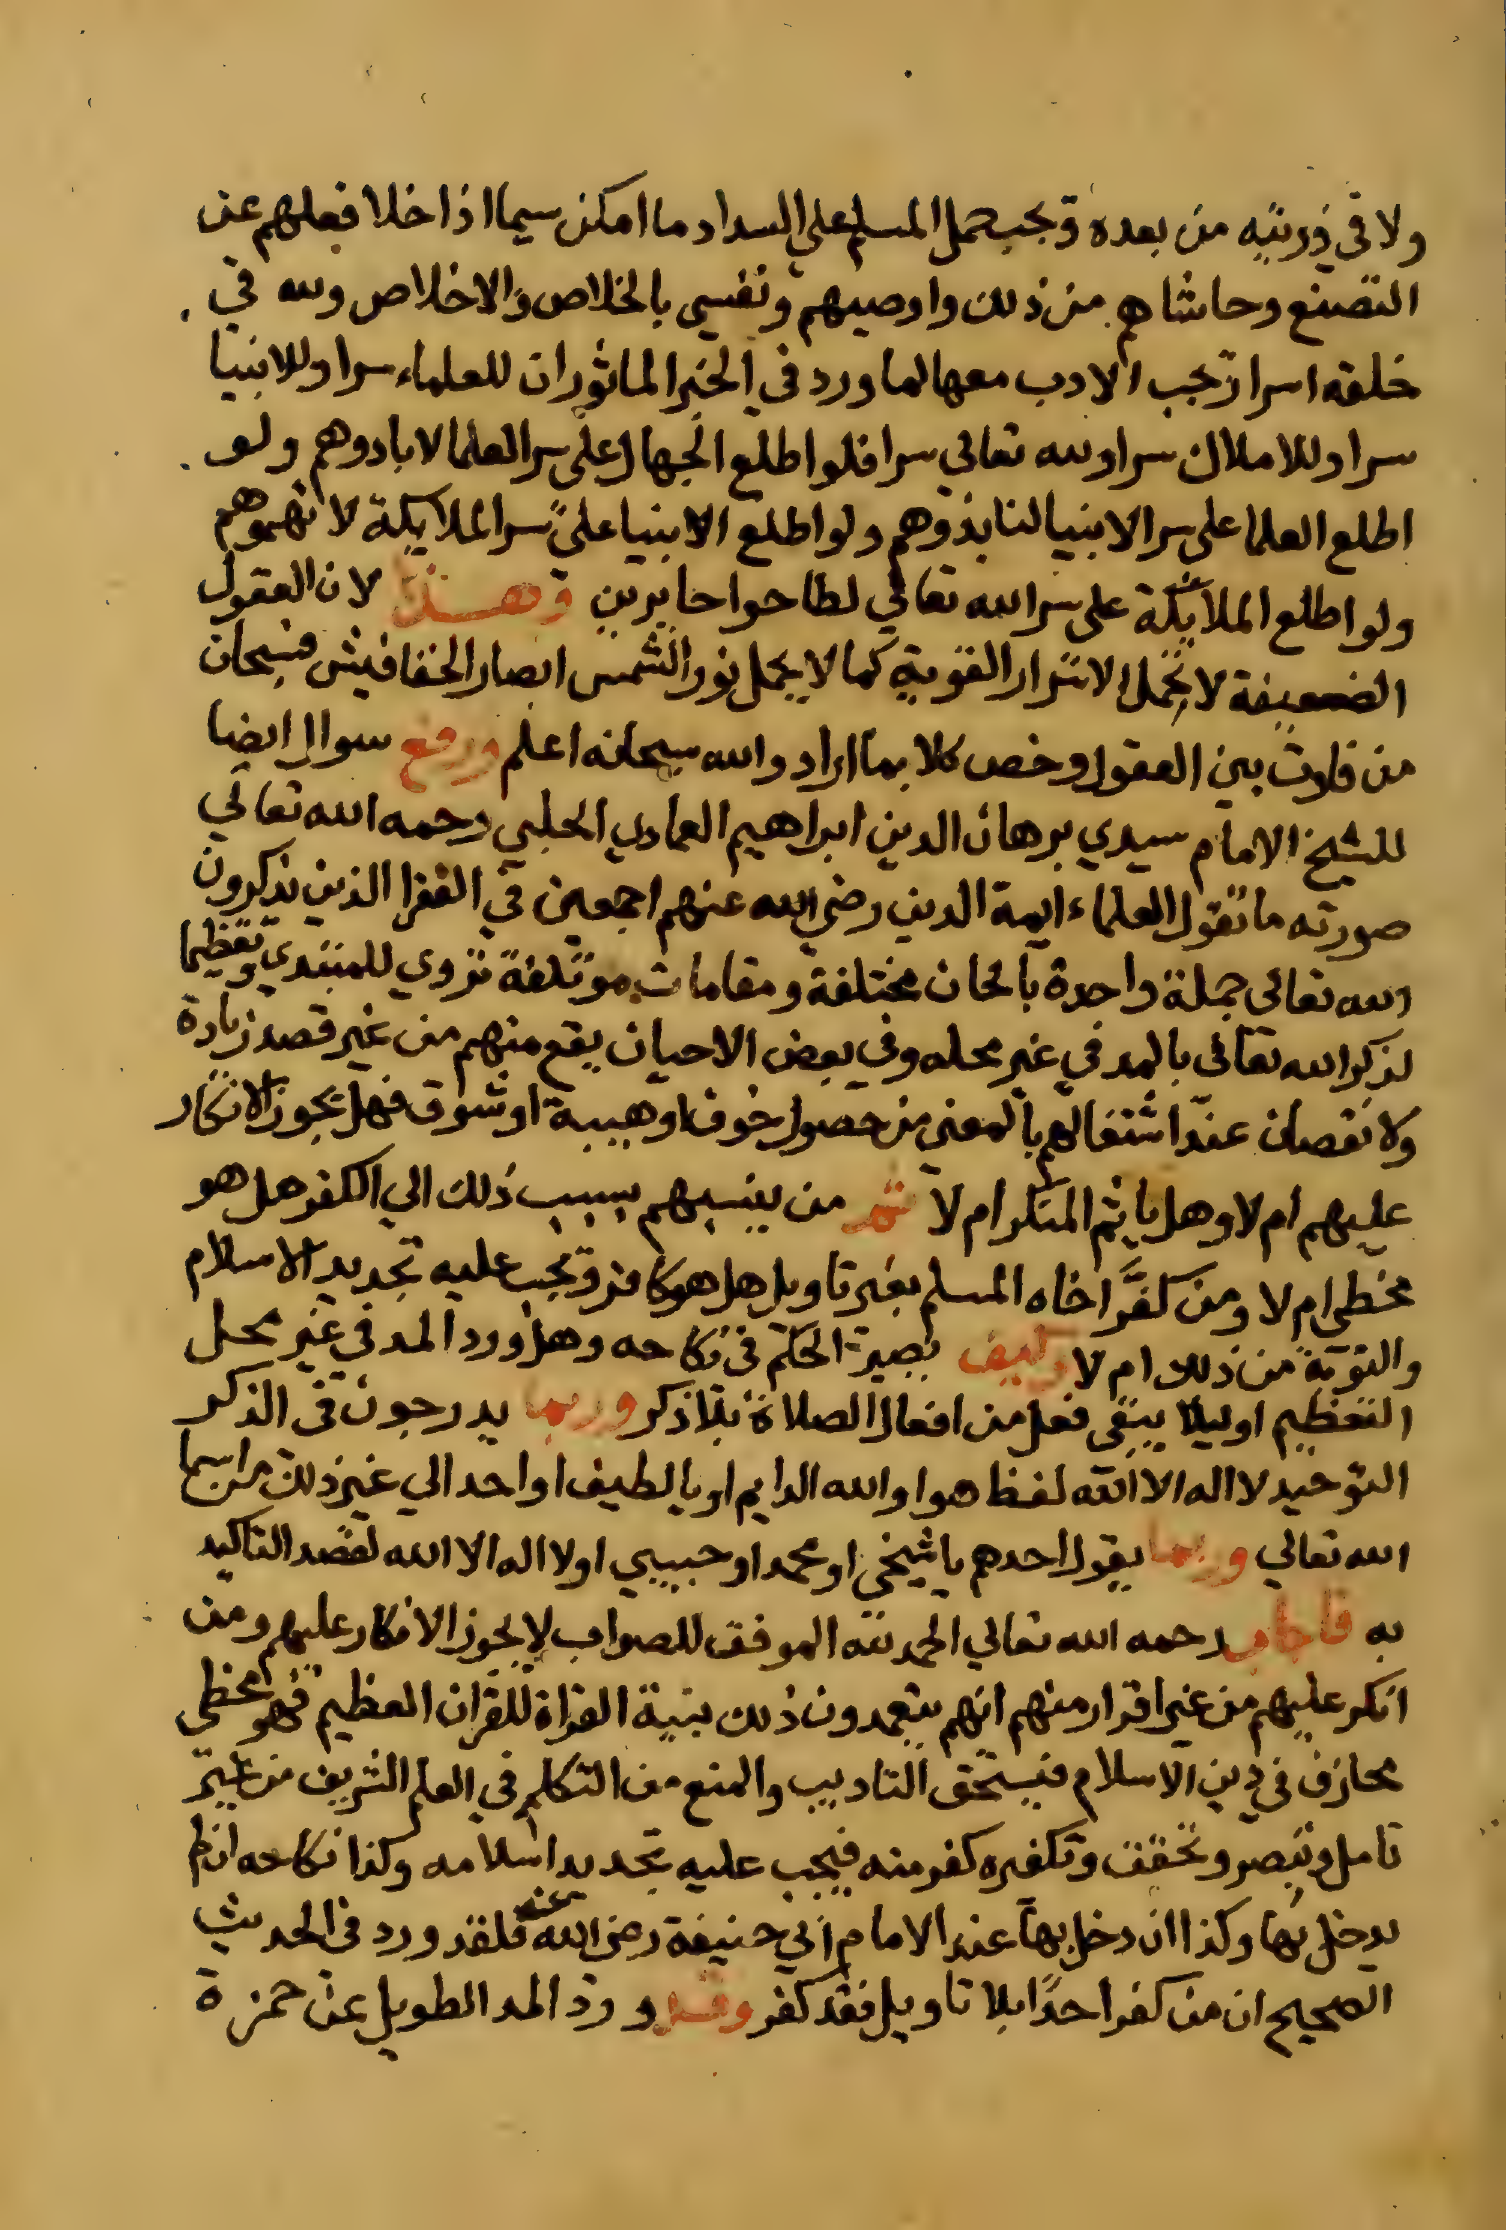 ولا في ذريته من بعده ويجب حمل المسلم على السداد ما امكن سيما اذا خلا فعلهم عن
التصنع وحاشاهم من ذلك واوصيهم ونفسي بالخلاص والاخلاص ولله في
خلقه اسرار تجب الادب معها لما ورد في الخبر الماثور ان للعلماء سرا وللانبيا
سرا وللاملاك سرا ولله تعالي سرا فلو اطلع الجهال على سر العلما لابادوهم ولو
اطلع العلما على سر الانبيا لنابذوهم ولو اطلع الانبيا على سر الملايكة لاتهموهم
ولو اطلع الملايكة على سر الله تعالي لطاحوا حايرين وهذا لان العقول
الضعيفة لا تحمل الاسرار القوية كما لا يحمل نور الشمس ابصار الخفافيش فسبحان
من فاوت بين العقول وخص كلا بما اراد والله سبحانه اعلم ورفع سوال ايضا
للشيخ الامام سيدي برهان الدين ابراهيم العمادي الحلبي رحمه الله تعالي
صورته ما تقول العلماء ايمة الدين رضي الله عنهم اجمعين في الفقرا الذين يذكرون
الله تعالى جملة واحدة بالحان مختلفة ومقامات موتلفة تروي للمبتدي وتعظيما
لذكر الله تعالى بالمد في غير محله وفي بعض الاحيان يقع منهم من غير قصد زيادة
ولا نقصان عند اشتغالهم بالمعنى من حصول خوف او هيبة او شوق فهل يجوز الانكار
عليهم ام لا وهل ياثم المنكر ام لا ثم من ينسبهم بسبب ذلك الي الكفر هل هو
مخطي ام لا ومن كفر اخاه المسلم بغير تاويل هل هو كافر ويجب عليه تجديد الاسلام
والتوبة من ذلك ام لا وكيف يصير الحكم في نكاحه وهل ورد المد في غير محل
التعظيم او ليلا يبقى فعل من افعال الصلاة بلا ذكر وربما يدرجون في الذكر
التوحيد لا اله الا الله لفظا هو او الله الدايم او يا لطيف او احد الي غير ذلك من اسما
الله تعالي وربما يقول احدهم يا شيخي او محمد او حبيبي او لا اله الا الله لقصد التاكيد
به فاجاب رحمه الله تعالي الحمد لله الموفق للصواب لا يجوز الانكار عليهم ومن
انكر عليهم من غير اقرار منهم انهم يتعمدون ذلك بنية القراة للقران العظيم فهو مخطي
مجازف في دين الاسلام فيستحق التاديب والمنع من التكلم في العلم الشريف من غير
تامل وتبصر وتحقق وتكفيره كفر منه فيجب عليه تجديد اسلامه وكذا نكاحه ان لم
يدخل بها وكذا ان دخل بها عند الامام ابي حنيفة رضي الله عنه فلقد ورد في الحديث
الصحيح ان من كفر احدا بلا تاويل فقد كفر وقد ورد المد الطويل عن حمزة